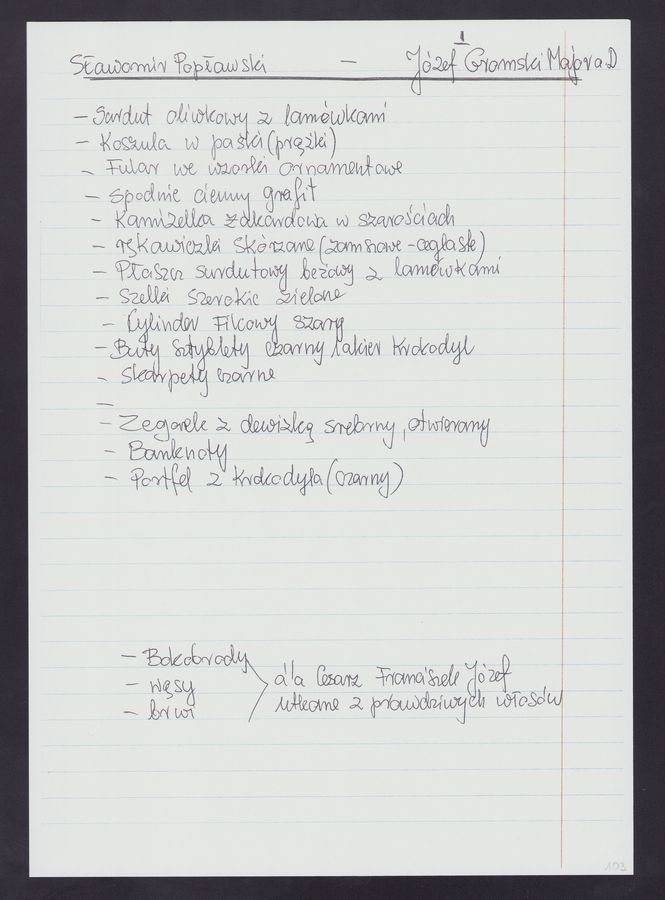 1
Sławomir Popławski - Józef Gromski Major a D
- Surdut oliwkowy z lamówkami
- Koszula w paski (prążki)
- Fular we wzorki ornamentowe
- Spodnie ciemny grafit
- Kamizelka żakardowa w szarościach
- rękawiczki skórzane (zamszowe - ceglaste)
- Płaszcz surdutowy beżowy z lamówkami
- Szelki szerokie zielone
- Cylinder Filcowy szary
- Buty Sztyblety czarny lakier Krokodyl
- Skarpety czarne
-
- Zegarek z dewizką srebrny, otwierany
- Banknoty
- Portfel z Krokodyla (czarny)
- Bokobrody
- wąsy
- brwi
á'la Cesarz Franciszek Józef
utkane z prawdziwych włosów
103